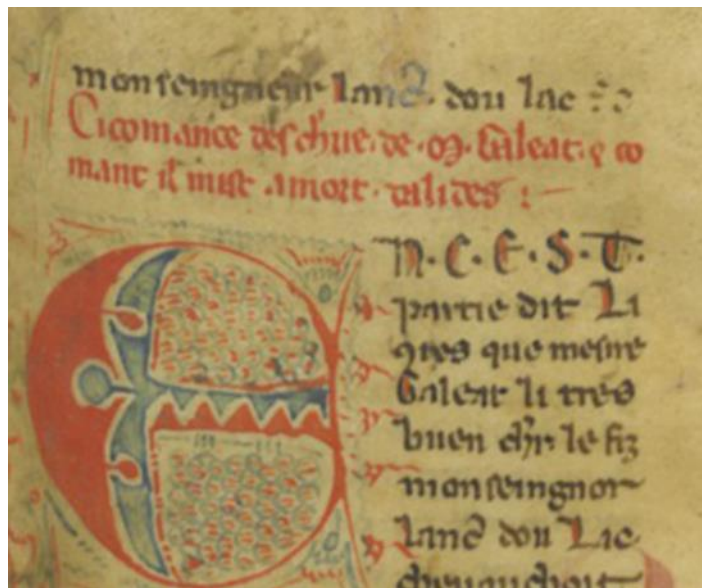 monseingneur lanc̃. dou lac
Ci comance des ch'rie. de .M. Galeat. ꝯ co
mant il mist a mort. talides :
E N. C. E. S. T.
partie dit Li
ꝯtes que mesire
Galeat li tres
buen ch'r. le fiz
monseingnor
lanc̃ dou Lac
cheuauchoit